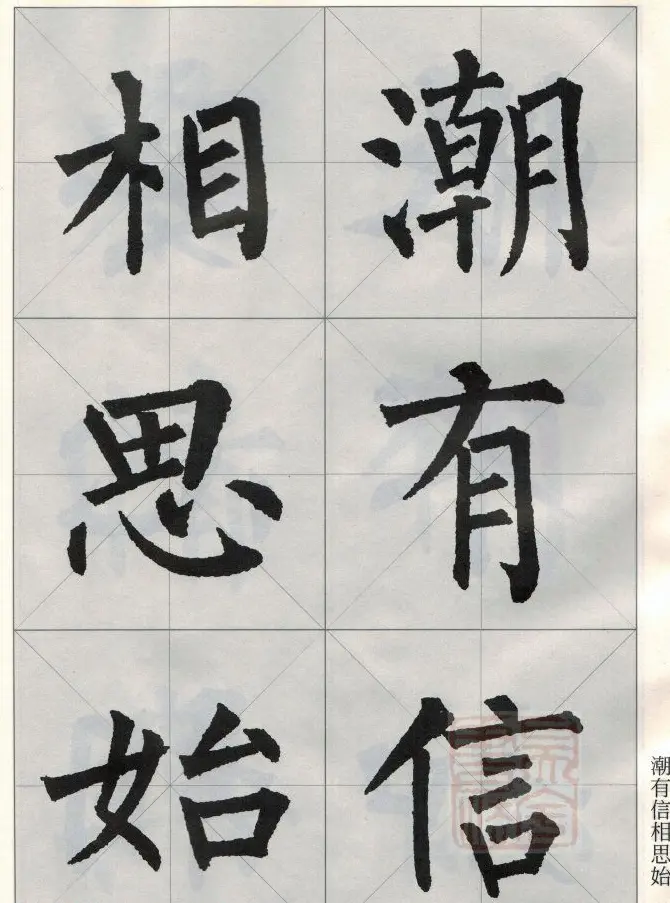 潮有信
相思始
潮有信相思始